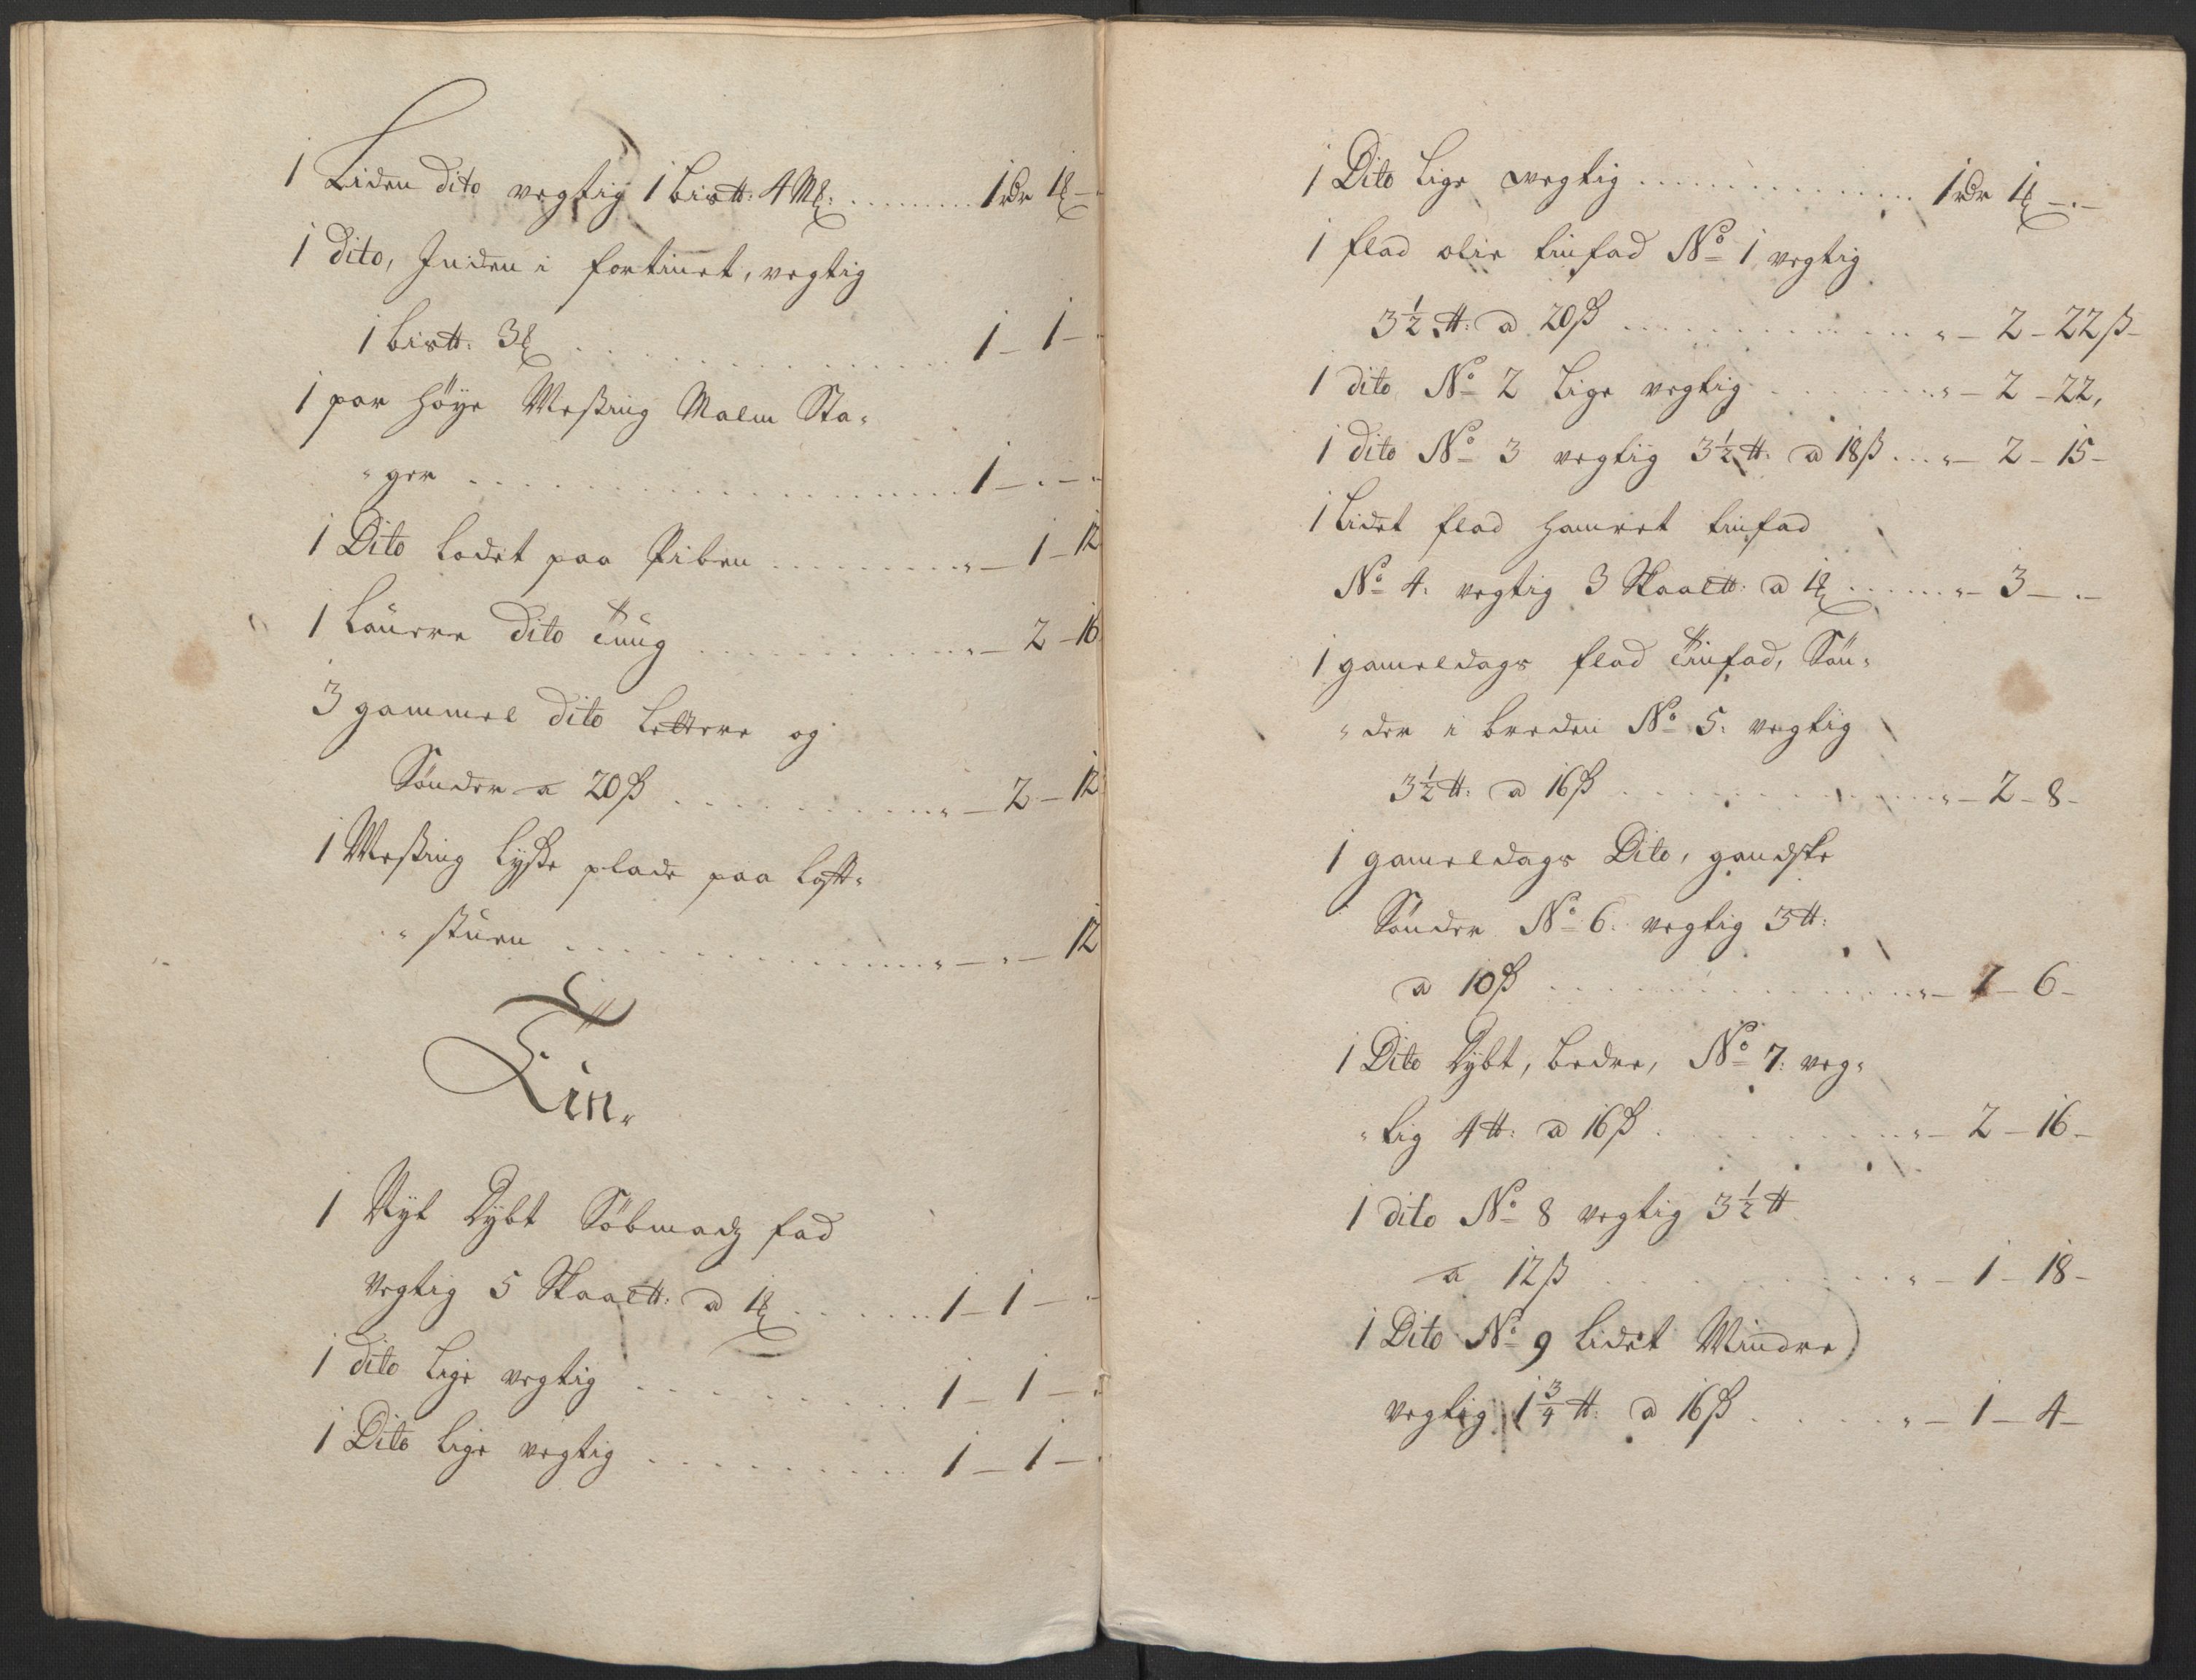 1 Liden dito vegtig 1 bis℔: 4 M℔: ........ 1 rdr 1 ℔ -
1 dito, Inden i fortinet, vegtig
1 bis℔: 3 ℔ ........ 1 - 1 -
1 par høye Messing Malm Sta-
"ger ........ 1 - . - .
1 Dito lodet paa Piben ........ " - 1 - 12
1 Laurre dito Tung ........ " - 2 - 16
3 gammel dito lettere og
Sönder a 20 ß ........ " - 2 - 12
1 Messing lyse plade paa loft-
"stuen ........ " - " - 12
Tin.
1 Nyt dybt Söbmadz fad
vegtig 5 Skaal℔: a 1 ℔ ........ 1 - 1 - .
1 dito lige vegtig ........ 1 - 1 - .
1 Dito lige vegtig ........ 1 - 1 - .
1 Dito lige vegtig ........ 1 rdr 1 ℔ - . -
1 flad olie tinfad No 1 vegtig
3½ ℔: a 20 ß ........ " - 2 - 22 ß -
1 dito No 2 lige vegtig ........ " - 2 - 22,
1 dito No 3 vegtig 3½ ℔: a 18 ß ... " - 2 - 15 -
1 lidet flad hamret tinfad
No 4: vegtig 3 Skaal℔: a 1 ℔ ...... " - 3 - . -
1 gameldags flad Tinfad, Sön-
"der i breden No 5: vegtig
3½ ℔: a 16 ß ........ " - 2 - 8 -
1 gameldags Dito, gandske
Sönder No 6: vegtig 3 ℔:
a 10 ß ........ " - 1 - 6 -
1 Dito dybt, bedre, No 7: veg-
"tig 4 ℔: a 16 ß ........ " - 2 - 16 -
1 dito No 8 vegtig 3½ ℔
a 12 ß ........ " - 1 - 18 -
1 Dito No 9 lidet Mindre
vegtig 1¾ ℔: a 16 ß ........ " - 1 - 4 -